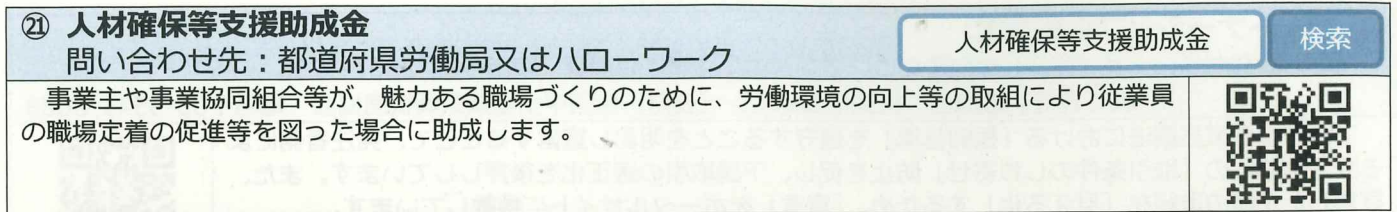 ㉑ 人材確保等支援助成金
問い合わせ先：都道府県労働局又はハローワーク
人材確保等支援助成金 検索
事業主や事業協同組合等が、魅力ある職場づくりのために、労働環境の向上等の取組により従業員
の職場定着の促進等を図った場合に助成します。